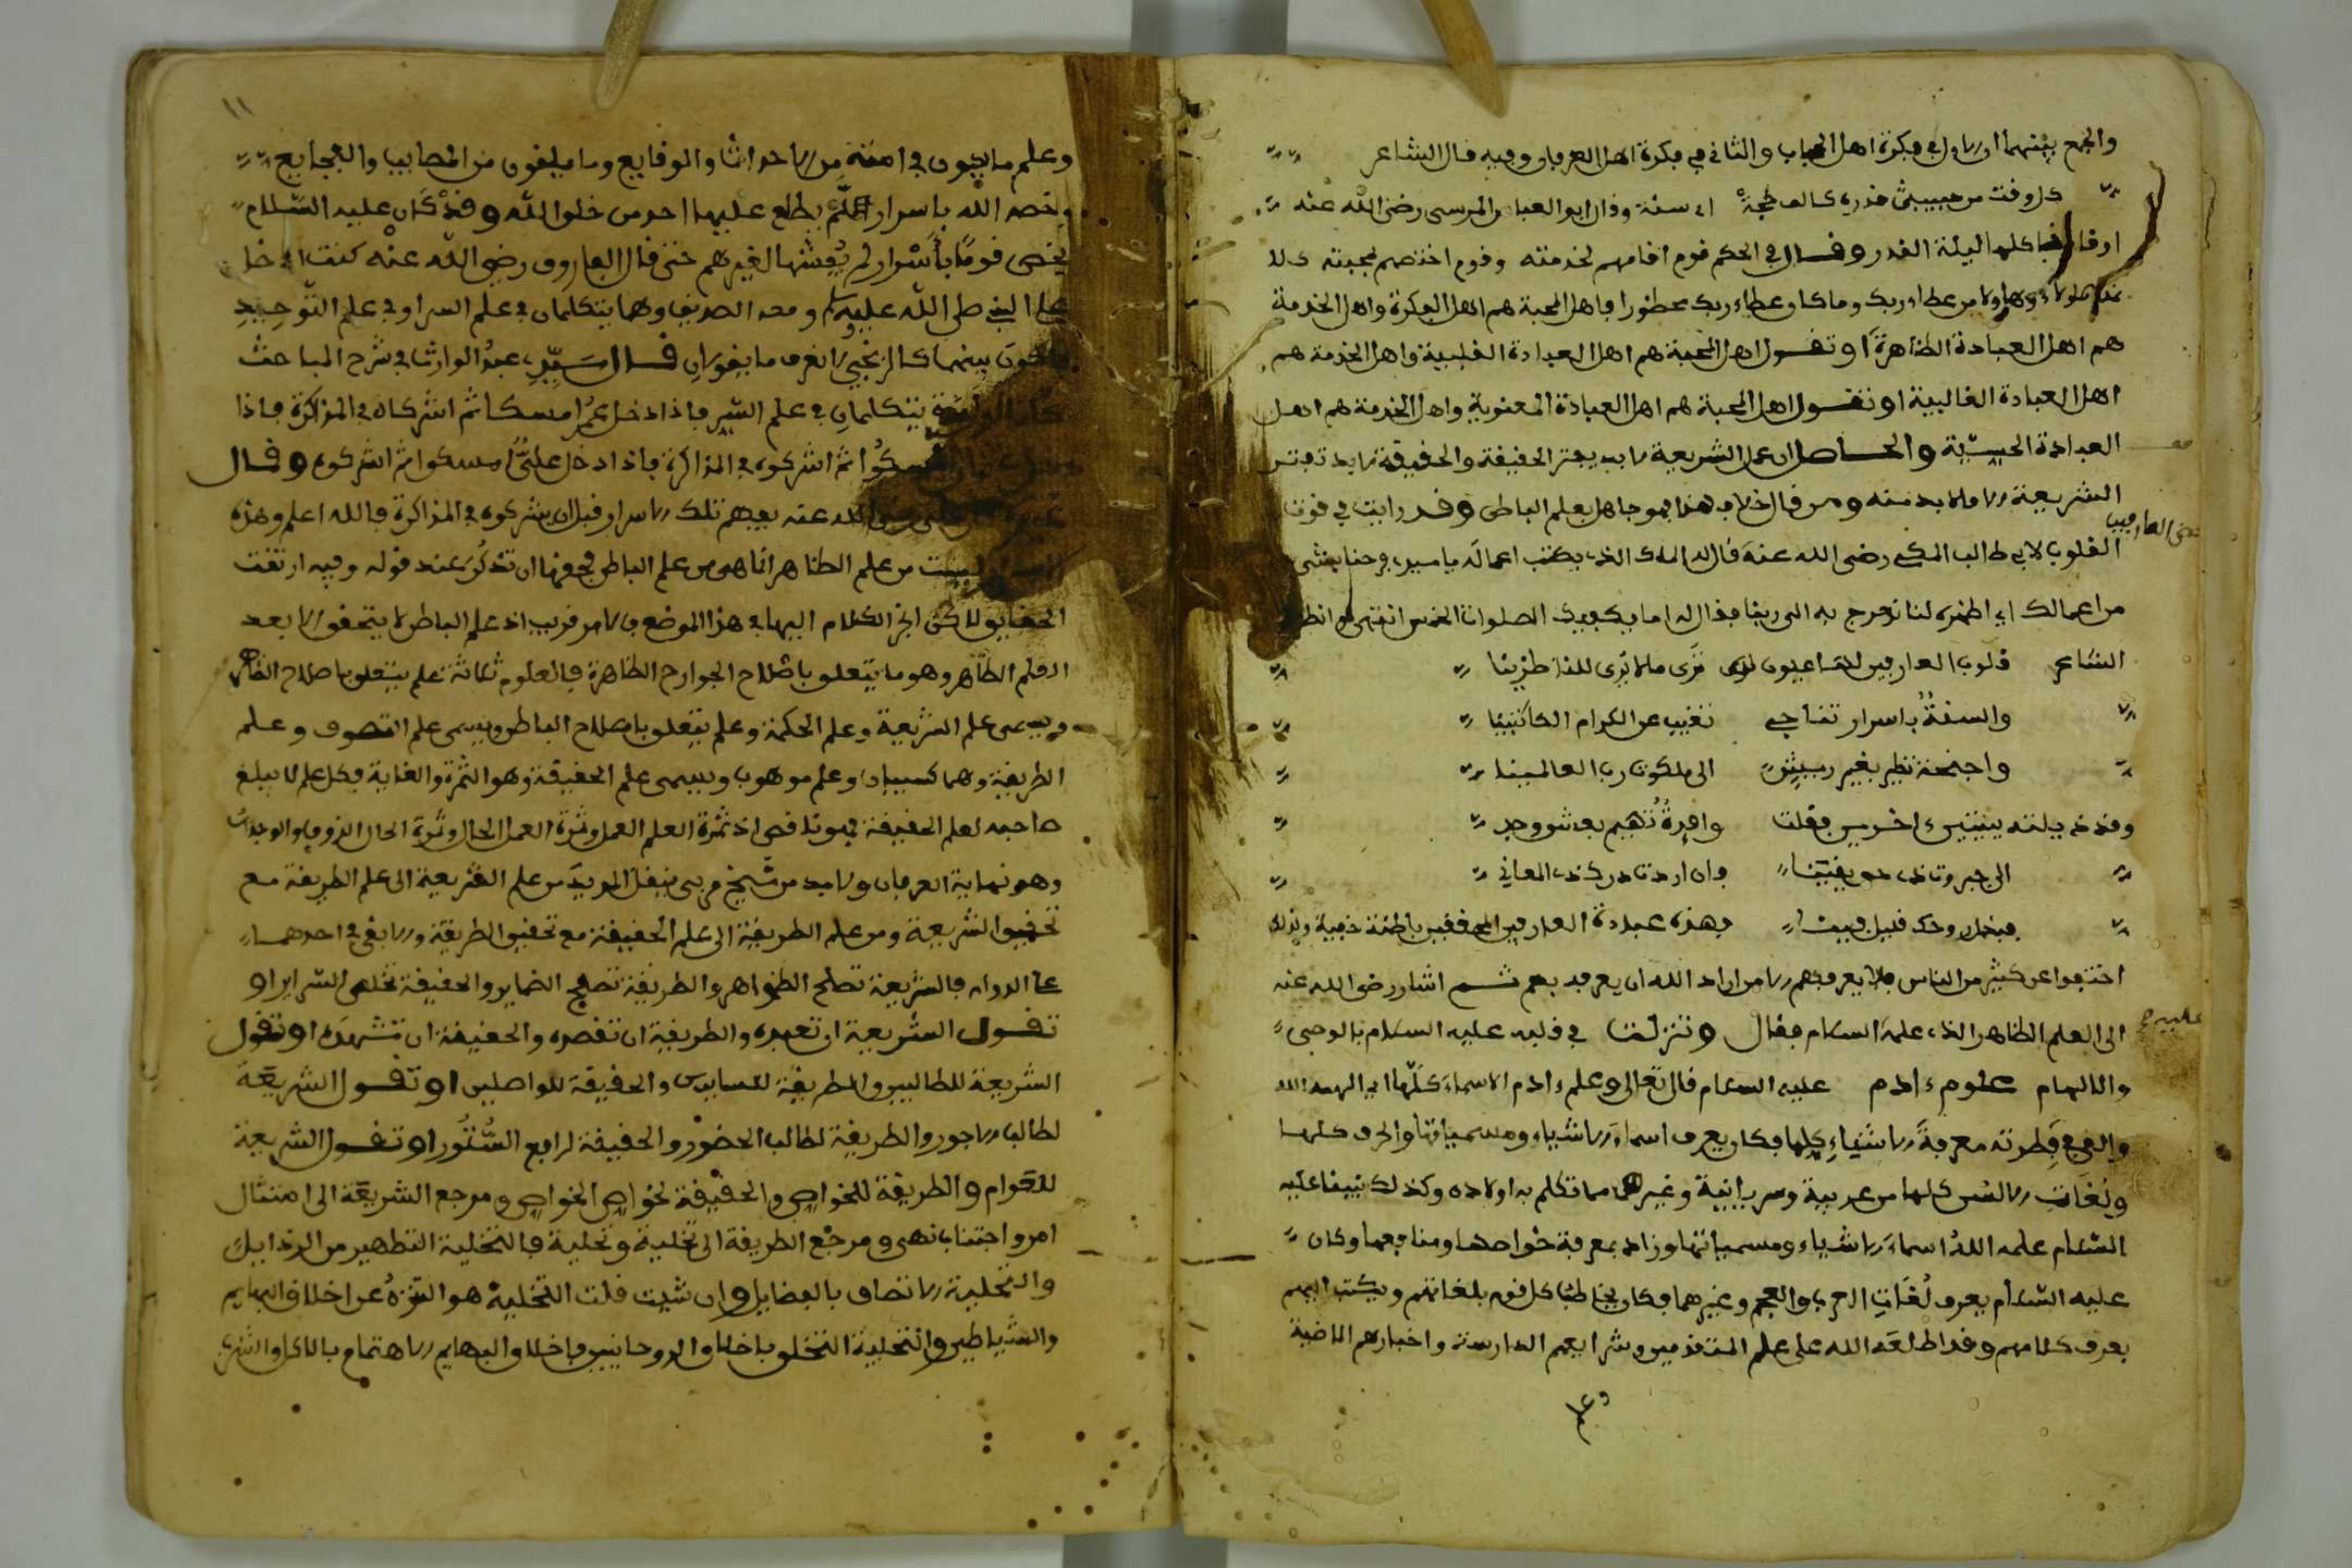 والجمع بينهما ان الاول في فكرة اهل الحجاب والثاني في فكرة اهل العرفان وفيه قال الشاعر
كل وقت من حبيبي قدره كالف حجة اي سنة وقال ابو العباس المرسي رضي الله عنه
اوقاتنا كلها ليلة القدر وقال في الحكم قوم اقامهم لخدمته وقوم اختصهم بمحبته كلا
نمد هؤلاء وهؤلاء من عطاء ربك وما كان عطاء ربك محظورا فاهل المحبة هم اهل الفكرة واهل الخدمة
هم اهل العبادة الظاهرة او تقول اهل المحبة هم اهل العبادة القلبية واهل الخدمة هم
اهل العبادة القالبية او تقول اهل المحبة هم اهل العبادة المعنوية واهل الخدمة هم اهل
العبادة الحسية والحاصل ان عمل الشريعة لا بد يفتر الحقيقة والحقيقة لا بد تفتر
الشريعة الا ما لا بد منه ومن قال خلاف هذا فهو جاهل بعلم الباطن وقد رايت في قوت
القلوب لابي طالب المكي رضي الله عنه قال له الملك الذي يكتب اعماله يا سيدي فرحنا بشيء
بعض العارفين
من اعمالك اي اظهره لنا نعرج به الى ربنا فقال له اما يكفيك الصلوات الخمس انتهى
الشاعر قلوب العارفين لها عيون ترى ما لا يرى للناظرينا
والسنة باسرار تناجي تغيب عن الكرام الكاتبينا
واجنحة تطير بغير ريش الى ملكوت رب العالمينا
وقد ذيلته ببيتين اخرين فقلت وافئدة تهيم بعشق ووجد
الى جبروت ذي حق يقينا فان اردت تدرك ذي المعاني
فبذل روحك قليل فينا فهذه عبادة العارفين المحققين باطنة خفية ولذلك
اختفوا عن كثير من الناس فلا يعرفهم الا من اراد الله ان يعرفه بهم ثم اشار رضي الله عنه
الى العلم الظاهر الذي علمه السلام فقال وتنزلت في قلبه عليه السلام بالوحي
عليه
والالهام علوم ءادم عليه السلام قال تعالى وعلم ءادم الاسماء كلها اي الهمه الله
والقى في فطرته معرفة الاشياء كلها فكان يعرف اسماء الاشياء ومسمياتها والحرف كلها
ولغات الالسن كلها من عربية وسريانية وغيرهما مما تكلم به اولاده وكذلك نبينا عليه
السلام علمه الله اسماء الاشياء ومسمياتها وزاد بمعرفة خواصها ومنافعها وكان
عليه السلام يعرف لغات العرب والعجم وغيرهما فكان يخاطب كل قوم بلغاتهم ويكتب اليهم
بعرف كلامهم وقد اطلعه الله على علم المتقدمين وشرايعهم الدارسة واخبارهم الماضية
وعلم
١١
وعلم ما يكون في امته من الاحداث والوقايع وما يلقون من المصايب والفجايع
وخصه الله باسرار لم يطلع عليها احد من خلق الله وقد كان عليه السلام
يخص قوما باسرار لم يفشها لغيرهم حتى قال الفاروق رضي الله عنه كنت ادخل
على النبي صلى الله عليه وسلم ومعه الصديق وهما يتكلمان في علم السر او في علم التوحيد
فاكون بينهما كالزنجي لا اعرف ما يقولان قال سيدي عبد الوارث في شرح المباحث
يتكلمان في علم السر فاذا دخل عمر امسكا ثم اشركاه في المذاكرة فاذا
امسكوا ثم اشركوه في المذاكرة فاذا دخل علي امسكوا ثم اشركوه وقال
علي رضي الله عنه يفهم تلك الاسرار قبل ان يشركوه في المذاكرة فالله اعلم وهذه
ليست من علم الظاهر انما هي من علم الباطن فحقها ان تذكر عند قوله وفيه ارتقت
الحقايق لاكن انجر الكلام اليها في هذا الموضع والامر قريب اذ علم الباطن لا يتحقق الا بعد
العلم الظاهر وهو ما يتعلق باصلاح الجوارح الظاهرة فالعلوم ثلاثة علم يتعلق باصلاح الظاهر
ويسمى علم الشريعة وعلم الحكمة وعلم يتعلق باصلاح الباطن ويسمى علم التصوف وعلم
الطريقة وهما كسبيان وعلم موهوب ويسمى علم الحقيقة وهو الثمرة والغاية فكل علم لا يبلغ
صاحبه لعلم الحقيقة فهو ناقص اذ ثمرة العلم العمل وثمرة العمل الحال وثمرة الحال الذوق والوجدان
وهو نهاية العرفان ولا بد من شيخ مربي ينقل المريد من علم الشريعة الى علم الطريقة مع
تحقيق الشريعة ومن علم الطريقة الى علم الحقيقة مع تحقيق الطريقة والا بقي في احدهما
على الدوام فالشريعة تصلح الظواهر والطريقة تصلح الضماير والحقيقة تصلح السراير او
تقول الشريعة ان تعبده والطريقة ان تقصده والحقيقة ان تشهده او تقول
الشريعة للطالبين والطريقة للسايرين والحقيقة للواصلين او تقول الشريعة
لطالب الاجور والطريقة لطالب الحضور والحقيقة لرافع الستور او تقول الشريعة
للعوام والطريقة للخواص والحقيقة لخواص الخواص ومرجع الشريعة الى امتثال
امر واجتناب نهي ومرجع الطريقة الى تخلية وتحلية فالتخلية التطهير من الرذايل
والتحلية الاتصاف بالفضايل وان شيت قلت التخلية هو التنزه عن اخلاق البهايم
والشياطين والتحلية التخلق باخلاق الروحانيين فاخلاق البهايم الاهتمام بالاكل والشرب